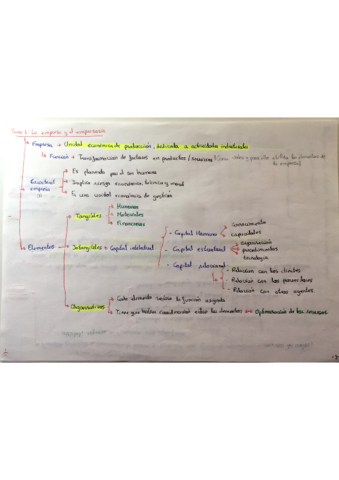 Tema 1: La empresa y el empresario
Empresa → Unidad económica de producción, dedicada a actividades industriales
Función → Transformación de factores en productos / servicios
Es planeada por el ser humano
Implica riesgo económico, técnico y moral
Es una unidad económica de gestión
empresa
Elementos
Tangibles
Humanos
Materiales
Financieros
Intangibles → Capital intelectual
- Capital Humano
Conocimiento
capacidades
- Capital estructural
organización
procedimientos
tecnología
- Capital relacional
- Relación con los clientes
- Relación con los proveedores
- Relación con otros agentes
Organizativos
Cada elemento realiza la función asignada
Tiene que haber coordinación entre los elementos → Optimización de los recursos